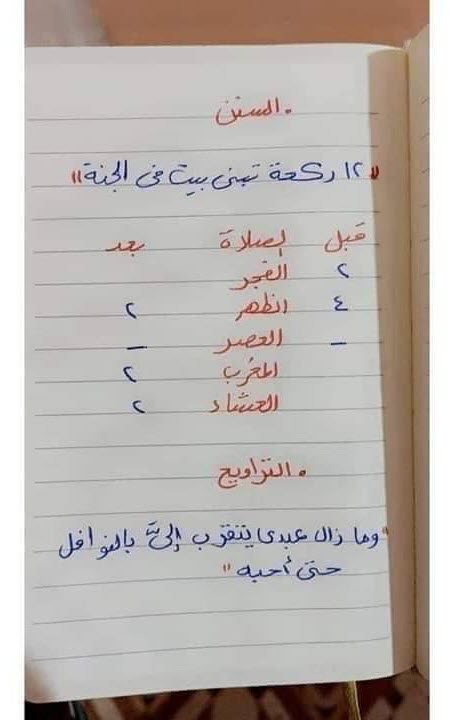 • السنن
"١٢ ركعة تبنى بيت فى الجنة"
قبل الصلاة بعد
٢ الفجر
٤ الظهر ٢
- العصر -
المغرب ٢
العشاء ٢
• التراويح
"وما زال عبدى يتقرب إلىَّ بالنوافل
حتى أحبه"